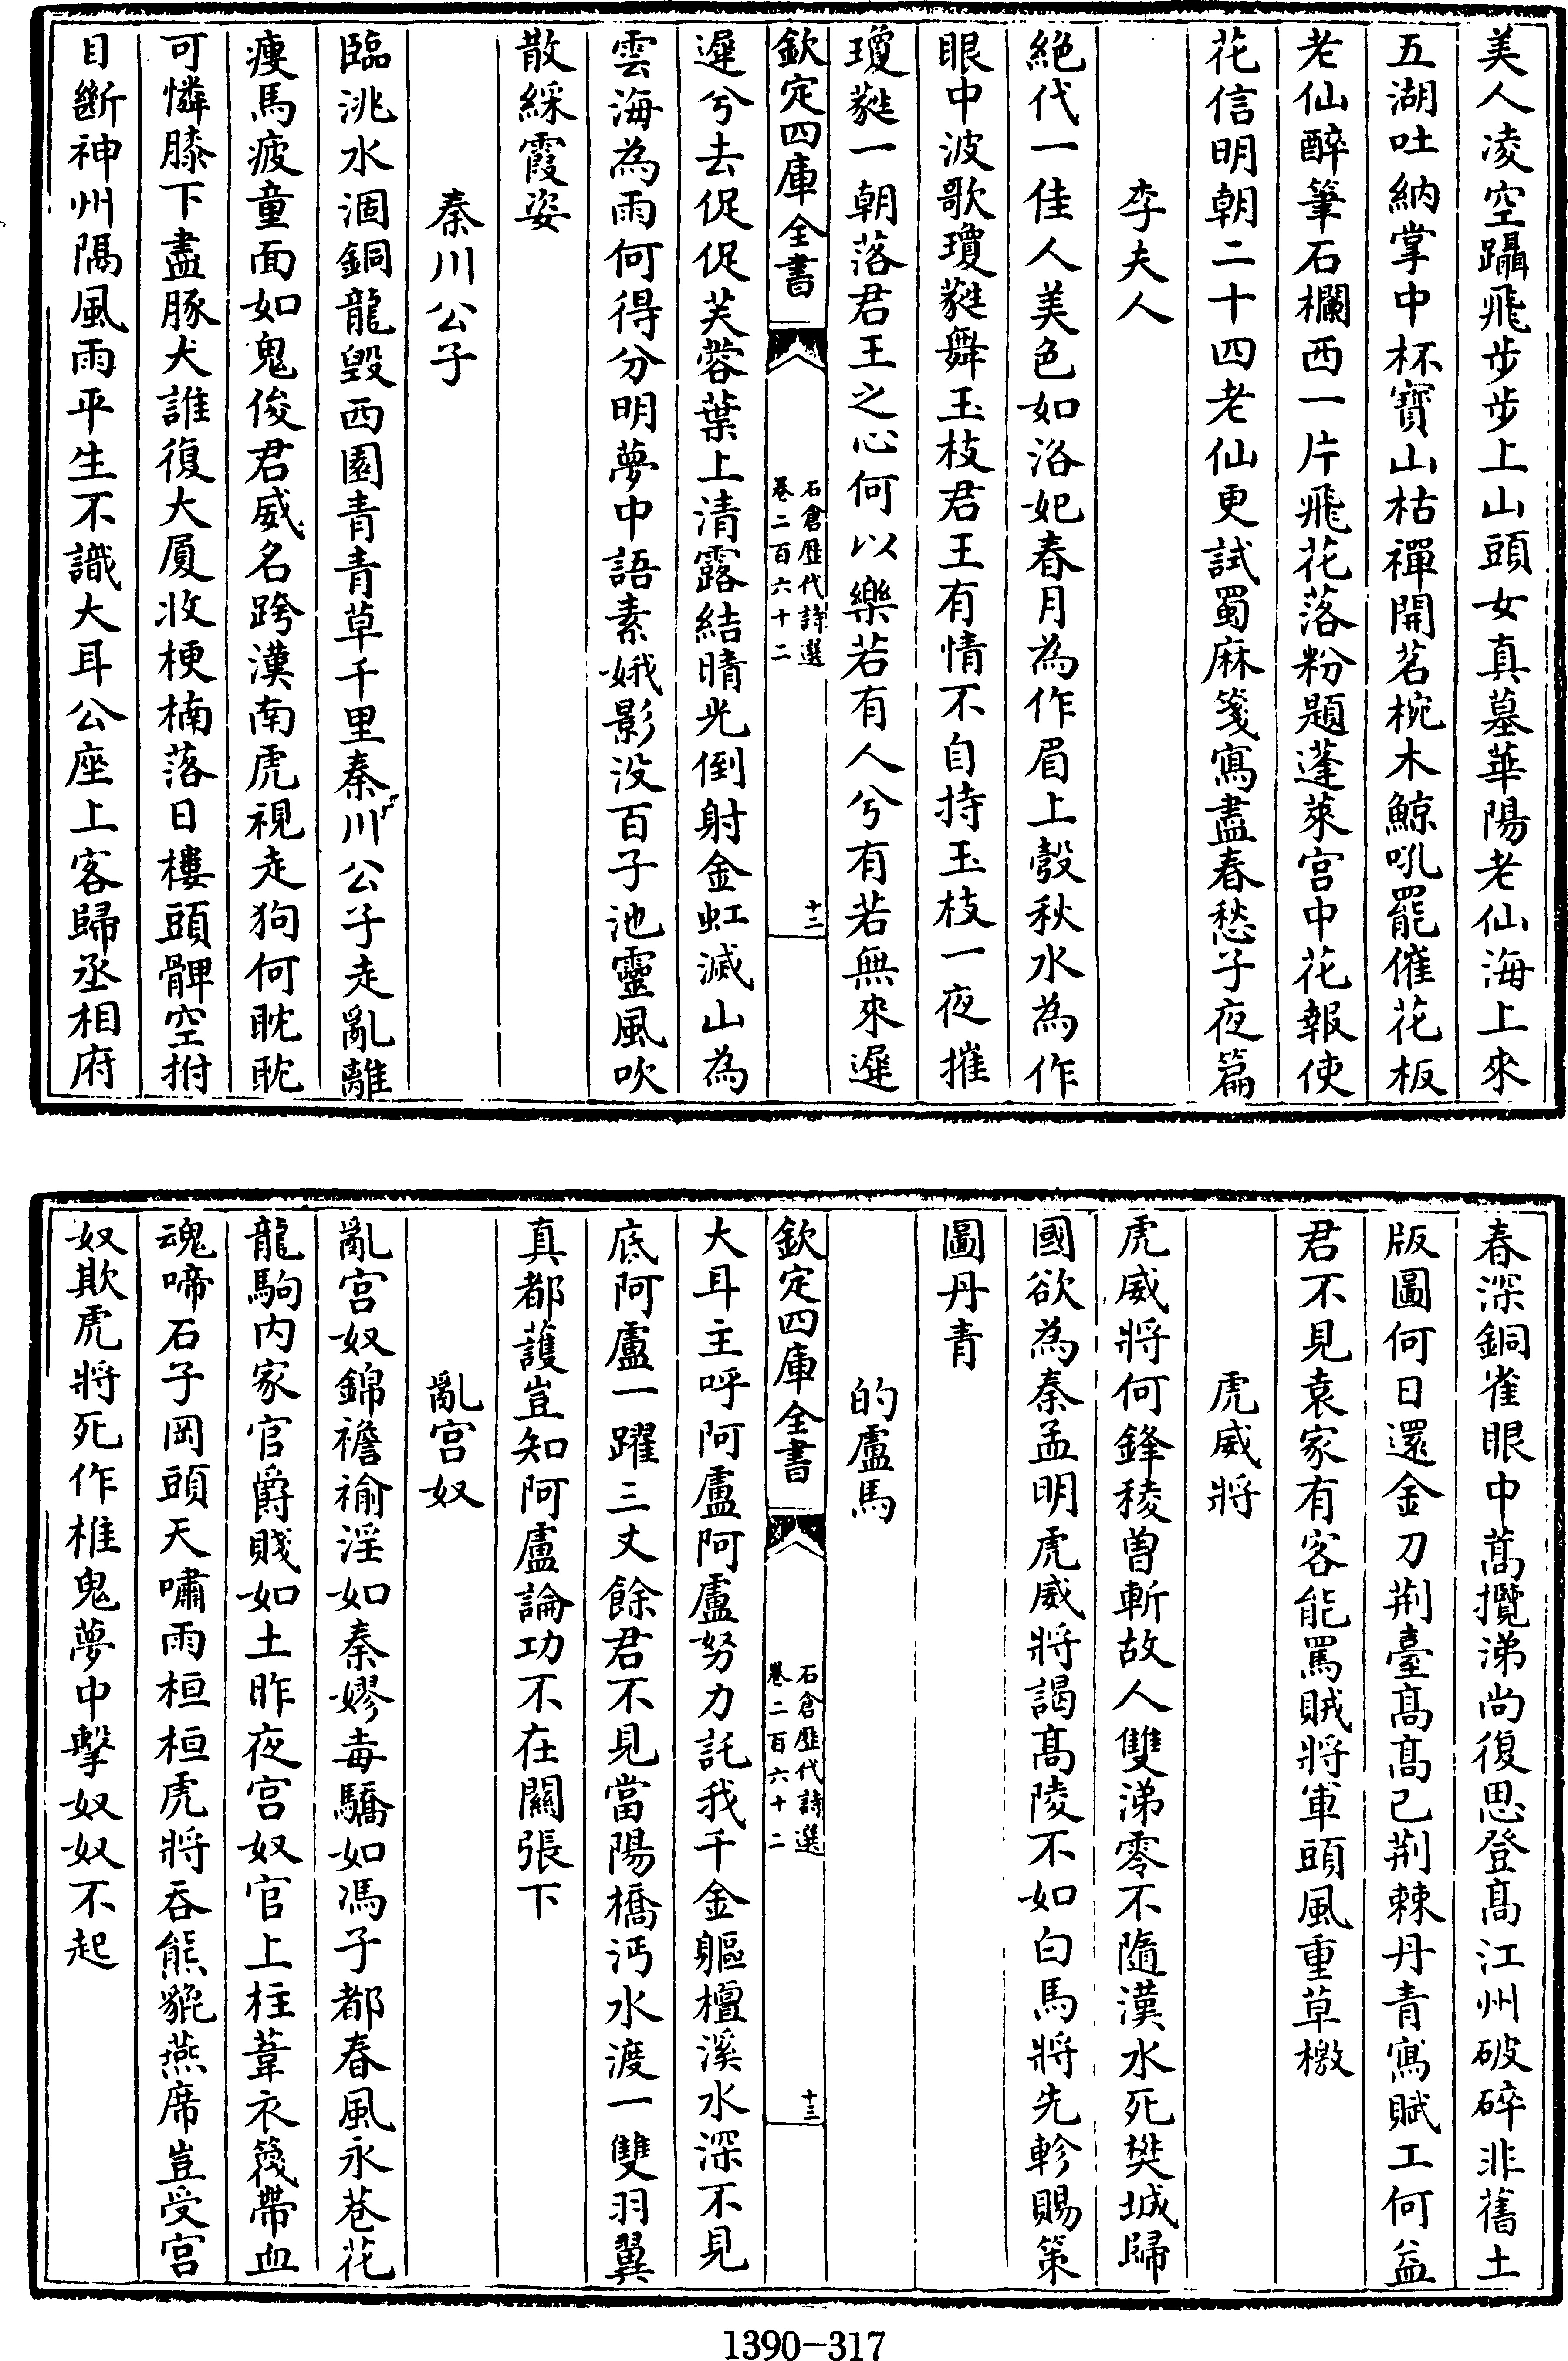 美人凌空躡飛步步上山頭女真墓華陽老仙海上來
五湖吐納掌中杯寳山枯禪開茗椀木鯨吼罷催花板
老仙醉筆石欄西一片飛花落粉題蓬萊宫中花報使
花信明朝二十四老仙更試蜀麻箋寫盡春愁子夜篇
李夫人
絶代一佳人美色如洛妃春月為作眉上彀秋水為作
眼中波歌瓊蕤舞玉枝君王有情不自持玉枝一夜摧
瓊蕤一朝落君王之心何以樂若有人兮有若無來遲
欽定四庫全書
石倉歷代詩選
卷二百六十二
十二
遲兮去促促芙蓉葉上清露結晴光倒射金虹滅山為
雲海為雨何得分明夢中語素娥影没百子池靈風吹
散綵霞姿
秦川公子
臨洮水涸銅龍毁西園青青草千里秦川公子走亂離
瘦馬疲童面如鬼俊君威名跨漢南虎視走狗何眈眈
可憐膝下盡豚犬誰復大厦收梗楠落日樓頭髀空拊
目斷神州隔風雨平生不識大耳公座上客歸丞相府
春深銅雀眼中蒿攬涕尚復思登髙江州破碎非舊土
版圖何日還金刀荆臺髙髙已荆棘丹青寫賦工何益
君不見袁家有客能罵賊將軍頭風重草檄
虎威將
虎威將何鋒稜曽斬故人雙涕零不隨漢水死樊城歸
國欲為秦孟明虎威將謁髙陵不如白馬將先軫賜策
圖丹青
的盧馬
欽定四庫全書
石倉歷代詩選
卷二百六十二
十三
大耳主呼阿盧阿盧努力託我千金軀檀溪水深不見
底阿盧一躍三丈餘君不見當陽橋沔水渡一雙羽翼
真都䕶豈知阿盧論功不在關張下
亂宫奴
亂宫奴錦襜褕淫如秦嫪毒驕如馮子都春風永巷花
龍駒内家官爵賤如土昨夜宫奴官上柱葦衣篾帶血
魂啼石子岡頭天嘯雨桓桓虎將吞熊貔燕席豈受宫
奴欺虎將死作椎鬼夢中擊奴奴不起
1390-317